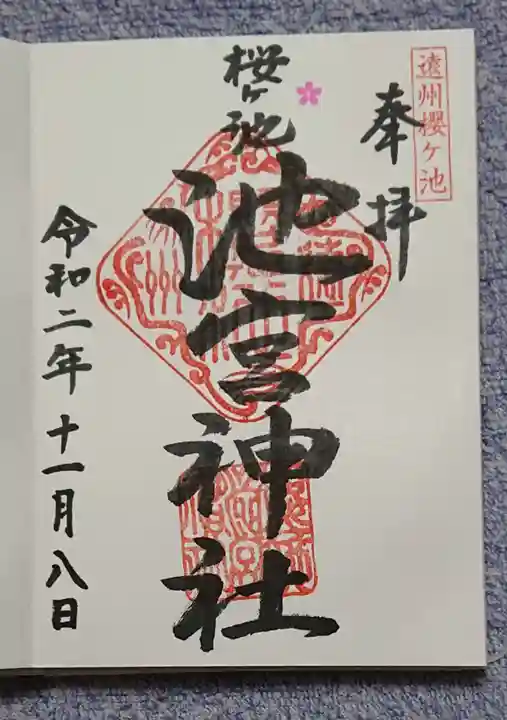 遠州櫻ケ池
奉拝
桜ヶ池
池宮神社
令和二年十一月八日